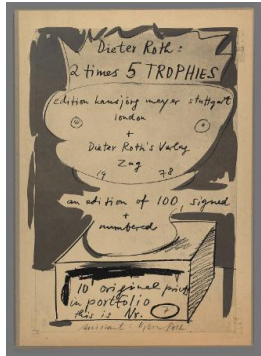 Dieter Roth:
2 times 5 TROPHIES
edition hansjörg mayer stuttgart
london
+
Dieter Roth's Verlag
Zug
19 78
an edition of 100, signed
+
numbered
10 original prints
in portfolio
this is Nr.